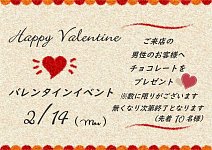 Happy Valentine
バレンタインイベント
2/14 (Mon)
ご来店の
男性のお客様へ
チョコレートを
プレゼント
※数に限りがございます
無くなり次第終了となります
(先着10名様)